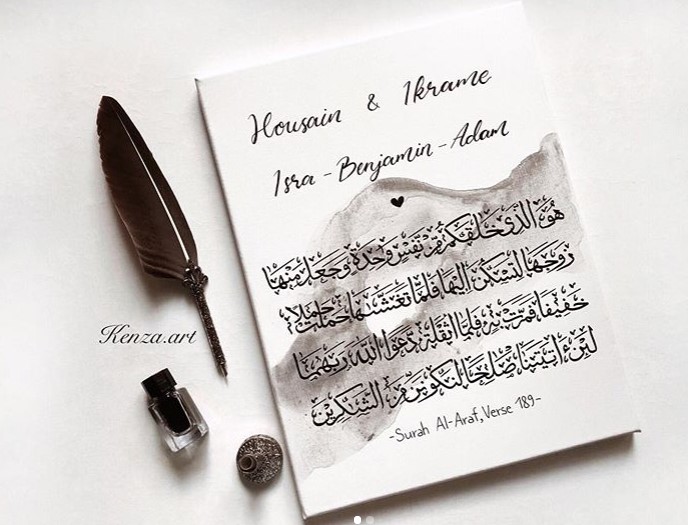 Housain & Ikrame
Isra - Benjamin - Adam
هُوَ الَّذِي خَلَقَكُم مِّن نَّفْسٍ وَاحِدَةٍ وَجَعَلَ مِنْهَا
زَوْجَهَا لِيَسْكُنَ إِلَيْهَا فَلَمَّا تَغَشَّىٰهَا حَمَلَتْ حَمْلًا
خَفِيفًا فَمَرَّتْ بِهِ فَلَمَّا أَثْقَلَت دَّعَوَا اللَّهَ رَبَّهُمَا
لَئِنْ ءَاتَيْتَنَا صَالِحًا لَّنَكُونَنَّ مِنَ الشَّٰكِرِينَ
-Surah Al-Araf, Verse 189-
Kenza.art